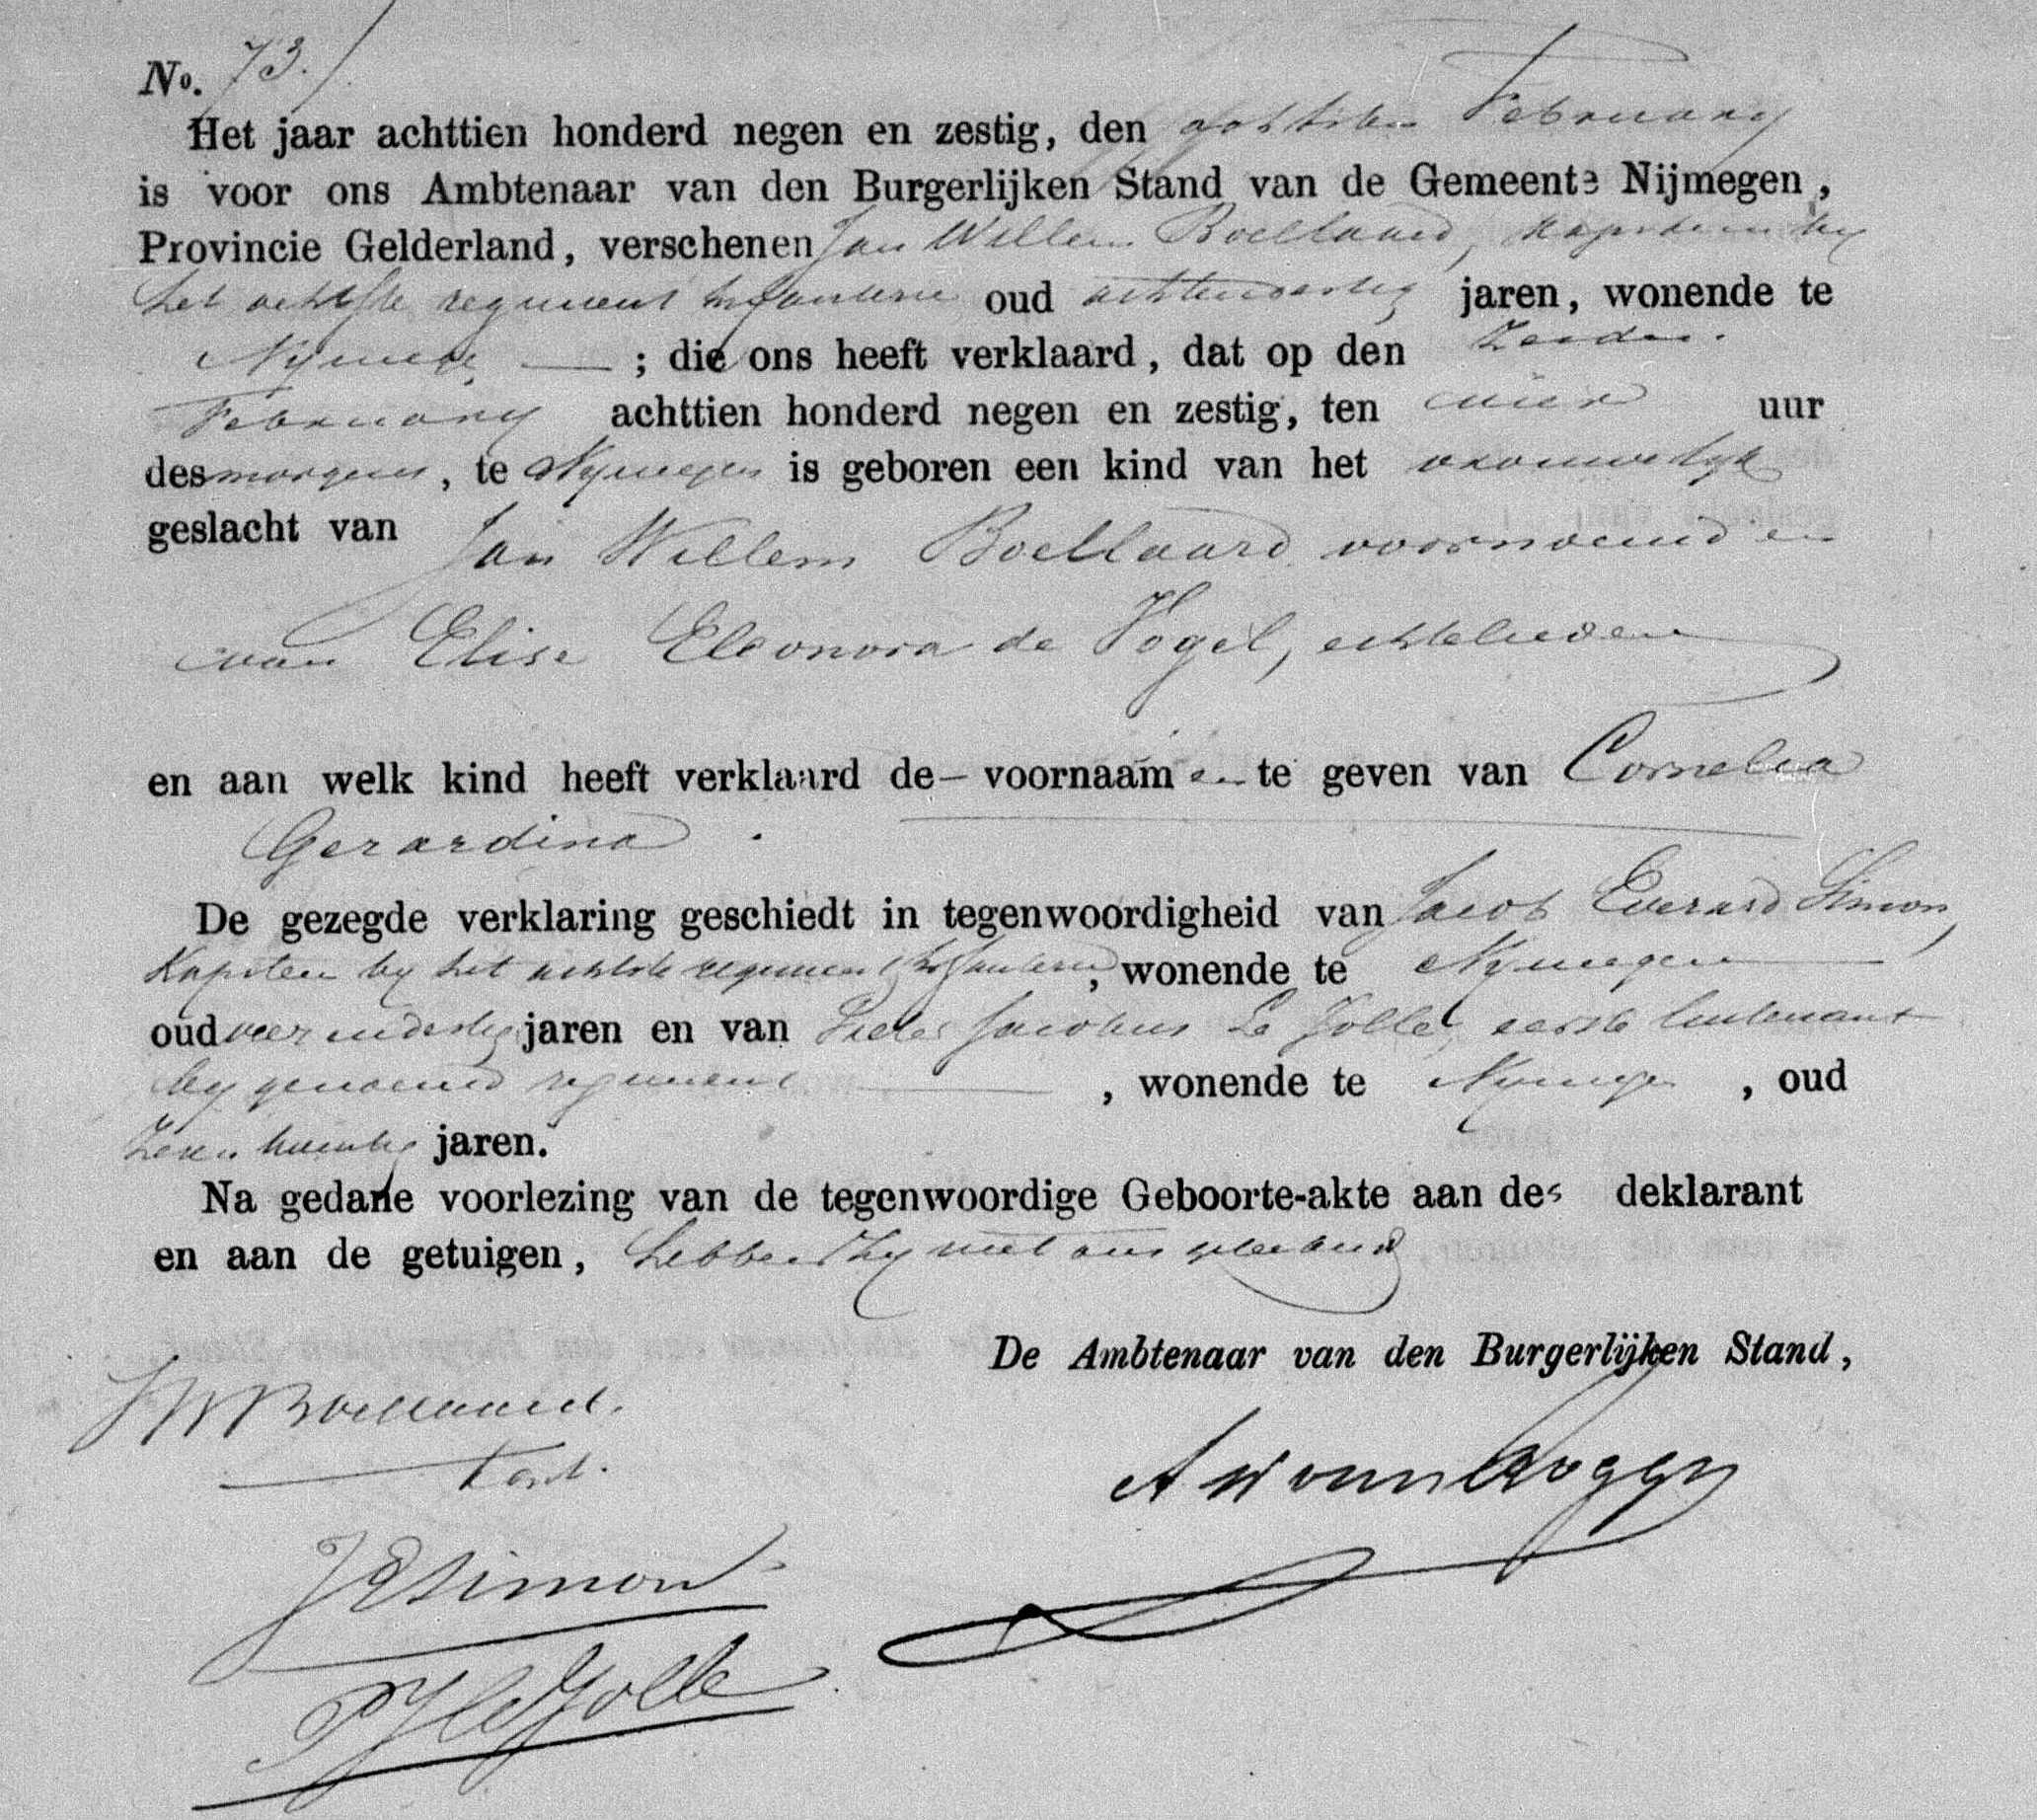 No. 73.
Het jaar achttien honderd negen en zestig, den achtsten February
is voor ons Ambtenaar van den Burgerlijken Stand van de Gemeente Nijmegen,
Provincie Gelderland, verschenen Jan Willem Boellaard, Kapitein by
het achtste regiment Infanterie oud achtendertig jaren, wonende te
Nymegen ; die ons heeft verklaard, dat op den
February achttien honderd negen en zestig, ten vier uur
des morgens, te Nymegen is geboren een kind van het vrouwelyk
geslacht van Jan Willem Boellaard voornoemd en
van Elise Eleonora de Vogel, echtelieden
en aan welk kind heeft verklaard de voornaamen te geven van Cornelia
Gerardina.
De gezegde verklaring geschiedt in tegenwoordigheid van Jacob Everard Simon,
Kapitein by het achtste regiment Infanterie, wonende te Nymegen
oud vierendertig jaren en van Pieter Jacobus Le Jolle, eerste luitenant
by genoemd regiment , wonende te Nymegen , oud
zevenentwintig jaren.
Na gedane voorlezing van de tegenwoordige Geboorte-akte aan des deklarant
en aan de getuigen, hebben zy met ons geteekend
De Ambtenaar van den Burgerlijken Stand,
JWBoellaard.
Kapt.
JESimon
PJLeJolle